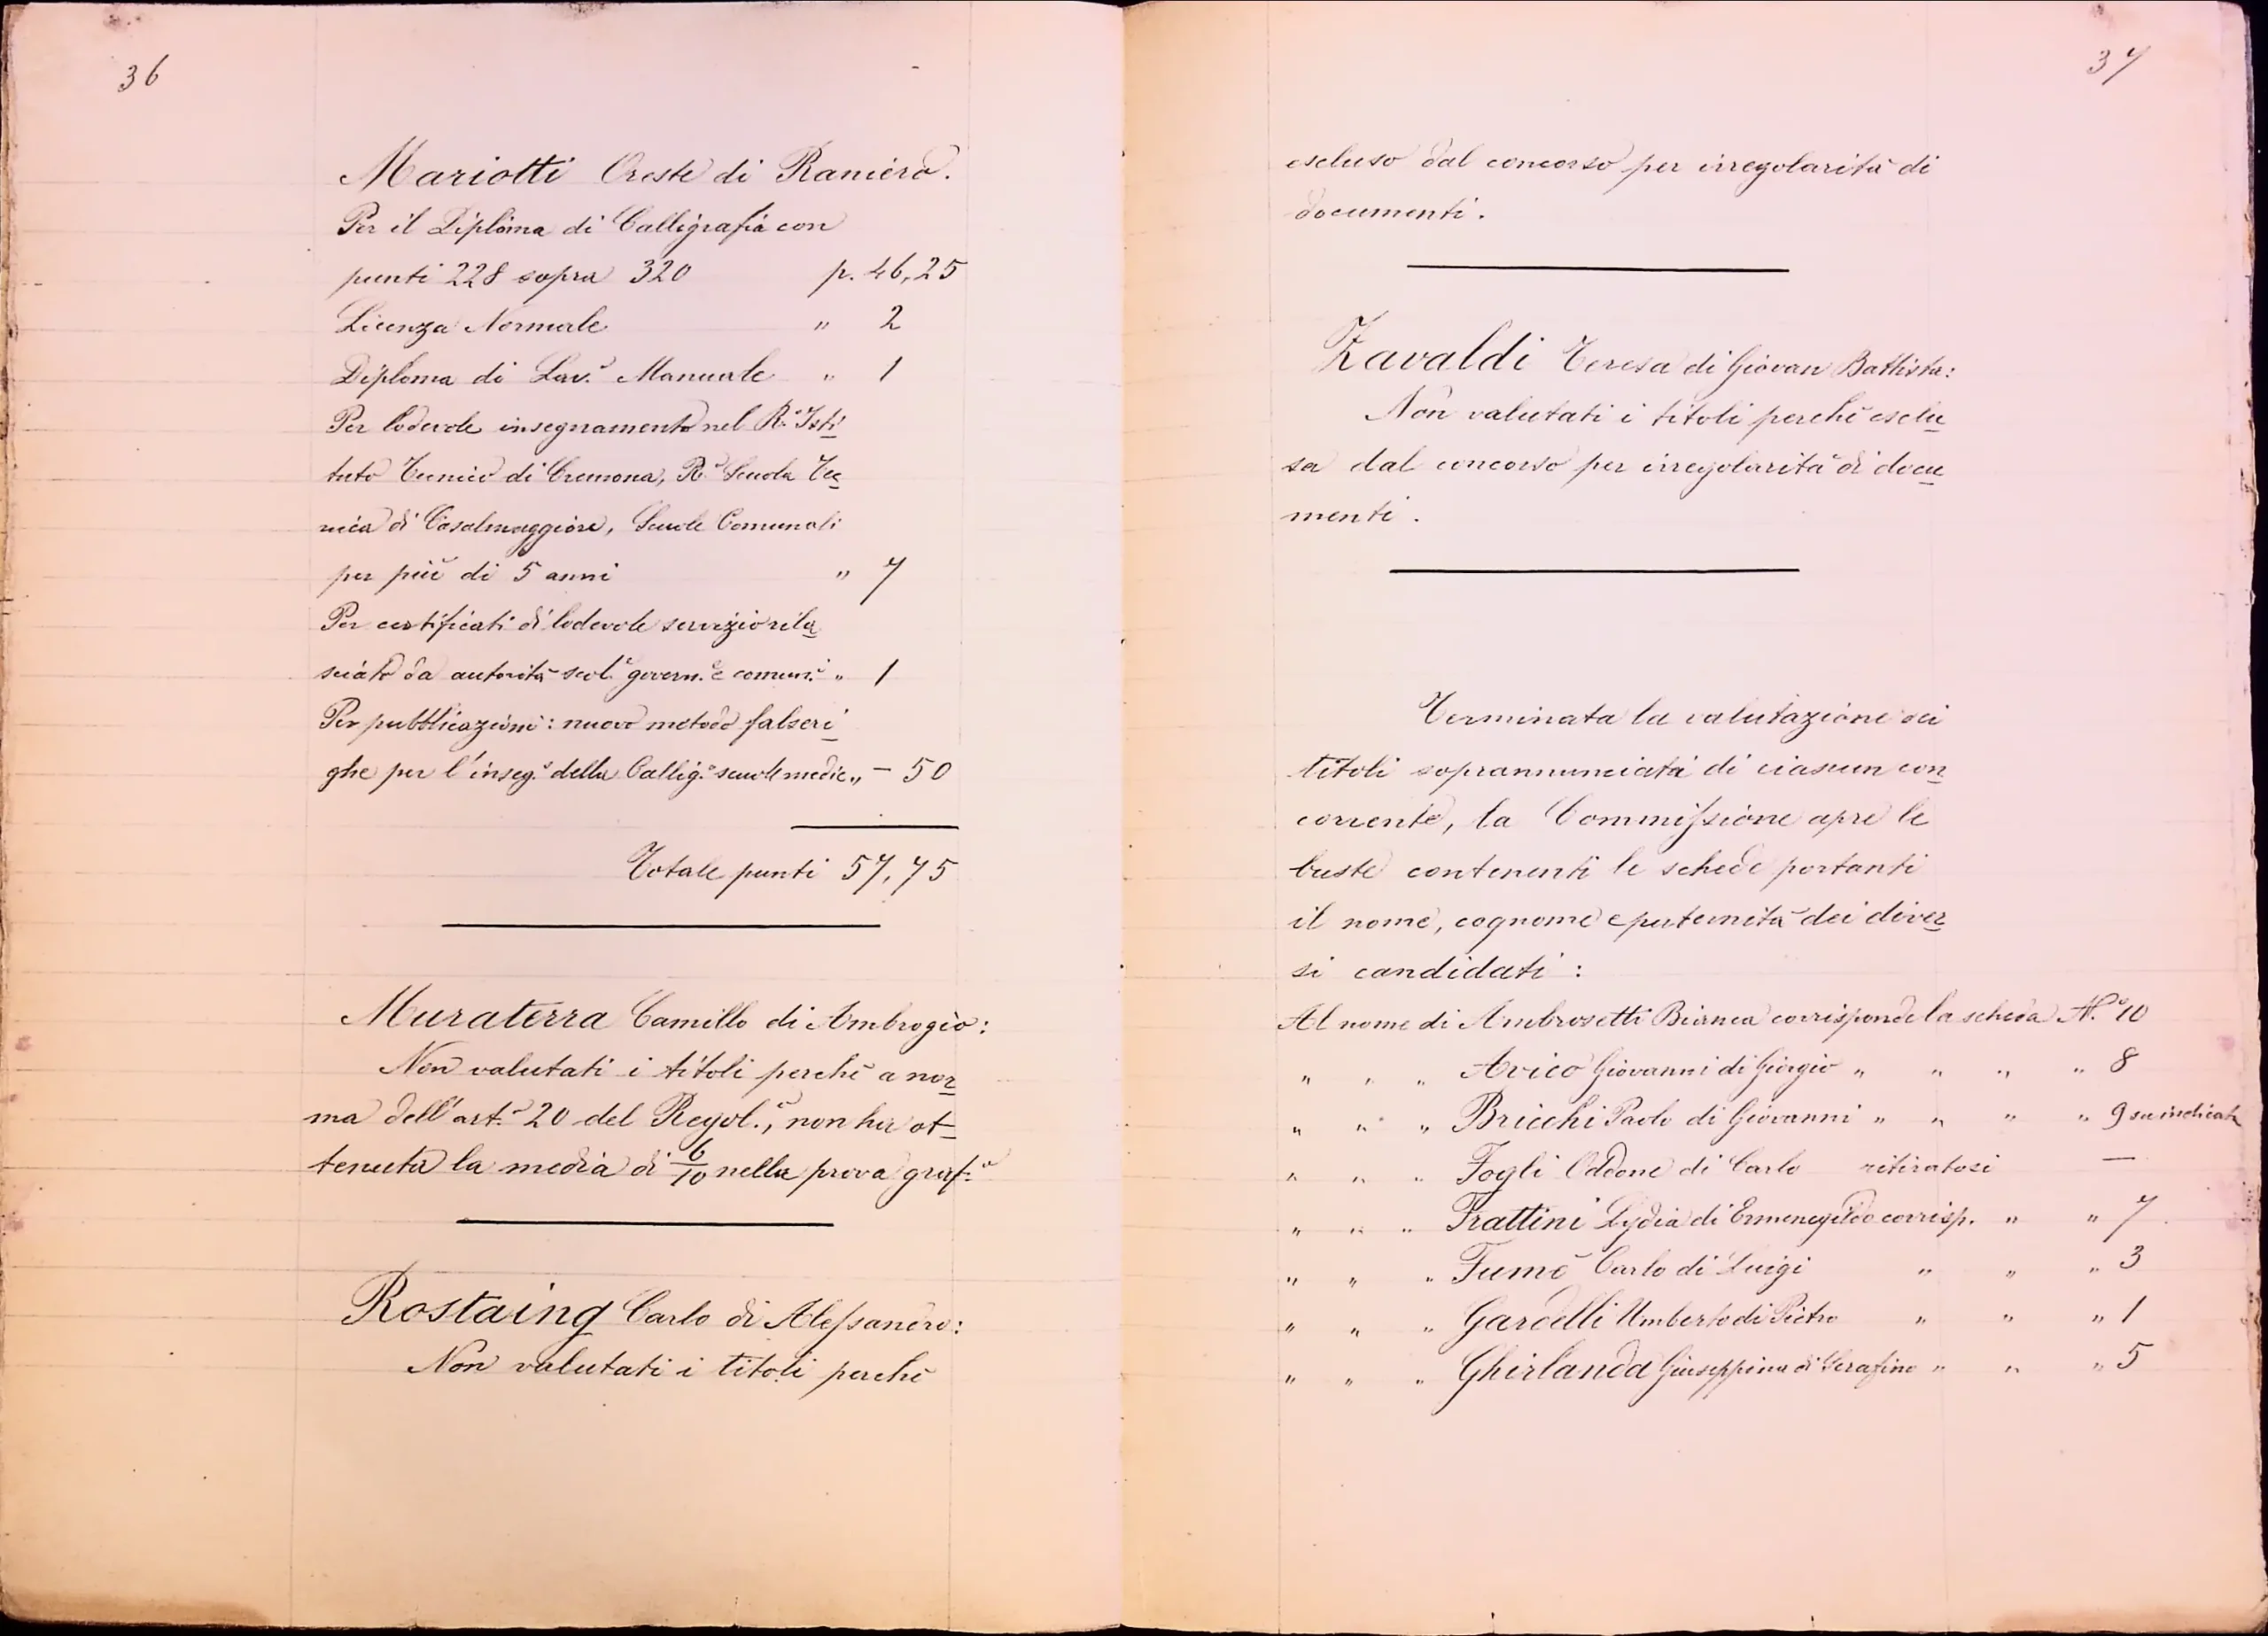 36
Mariotti Oreste di Raniero.
Per il Diploma di Calligrafia con
punti 228 sopra 320 p. 46,25
Licenza Normale " 2
Diploma di Lav.º Manuale " 1
Per lodevole insegnamento nel R.º Isti
tuto Tecnico di Cremona, R.ª Scuola Tec
nica di Casalmaggiore, Scuole Comunali
per più di 5 anni " 7
Per certificati di lodevole servizio rila
sciato da autorità scol.e govern.e e comun.i " 1
Per pubblicazioni: nuovo metodo falseri
ghe per l'inseg.º della Callig.ª scuole medie " – 50
Totale punti 57,75
Muraterra Camillo di Ambrogio:
Non valutati i titoli perchè a nor
ma dell'art.º 20 del Regol.º, non ha ot
tenuta la media di 6/10 nella prova graf.ª
Rostaing Carlo di Alessandro:
Non valutati i titoli perchè
37
escluso dal concorso per irregolarità di
documenti.
Zavaldi Teresa di Giovan Battista:
Non valutati i titoli perchè esclu
sa dal concorso per irregolarità di docu
menti.
Terminata la valutazione dei
titoli soprannunciati di ciascun con
corrente, la Commissione apre le
buste contenenti le schede portanti
il nome, cognome e paternità dei diver
si candidati:
Al nome di Ambrosetti Bianca corrisponde la scheda N.º 10
" " " Avico Giovanni di Giorgio " " " " 8
" " " Bricchi Paolo di Giovanni " " " " 9 su indicata
" " " Fogli Oddone di Carlo ritiratosi —
" " " Frattini Lydia di Ermenegildo corrisp. " " 7
" " " Fumè Carlo di Luigi " " " 3
" " " Gardelli Umberto di Pietro " " " 1
" " " Ghirlanda Giuseppina di Serafino " " " 5